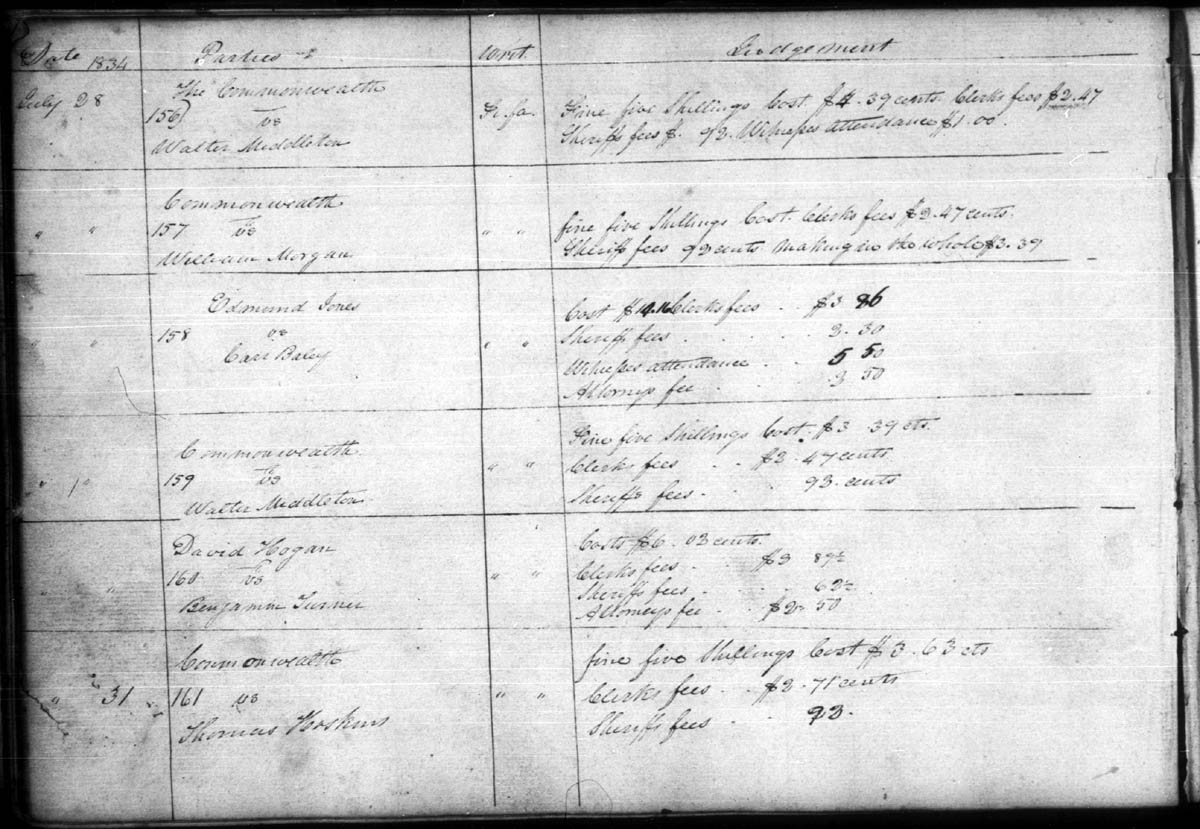 Date 1834 Parties Writ Judgement
July 28 The Commonwealth
156) vs Fi fa Fine five Shillings Cost. $4. 39 cents. Clerks fees $2.47
Walter Middleton Sheriffs fees $. 92. Witnesses attendance $1.00.
Commonwealth
" " 157 vs " " fine five Shillings Cost. Clerks fees $2.47 cents.
William Morgan Sheriff fees 92 cents making in the whole $3.39
Edmund Jones Cost $14.16 Clerks fees . . $3 86
" " 158 vs " " Sheriff fees . . . . . 2. 30
Carr Baley Witnesses attendance . . 5 50
Attorneys fee . . 2 50
Commonwealth Fine five Shillings Cost. $3 39 cts.
" " 159 vs " " Clerks fees . . $2. 47 cents
Walter Middleton Sheriffs fees . . . 92. cents
David Hogan Costs $6. 03 cents.
" " 160 vs " " Clerks fees . . $2 89½
Benjamin Turner Sheriffs fees . . . 62½
Attorneys fee . . $2. 50
Commonwealth fine five Shillings Cost $3. 63 cts
" 31 161 vs " " Clerks fees . . $2. 71 cents
Thomas Hoskins Sheriffs fees . . 92.